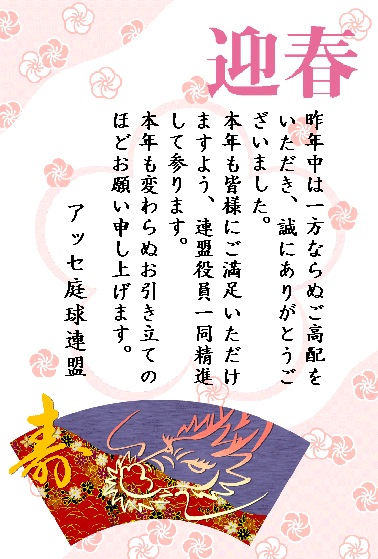 迎春
昨年中は一方ならぬご高配を
いただき、誠にありがとうご
ざいました。
本年も皆様にご満足いただけ
ますよう、連盟役員一同精進
して参ります。
本年も変わらぬお引き立ての
ほどお願い申し上げます。
アッセ庭球連盟
寿